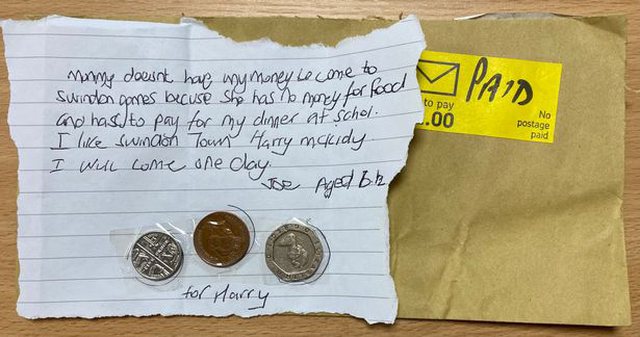 Mummy doesnt have my money to come to
swindon games becuse she has no money for food
and hass to pay for my dinner at schol.
I like swindon Town Harry mckirdy
I will come one day.
Joe Aged 6 ½
for Harry
PAID
to pay
.00
No
postage
paid